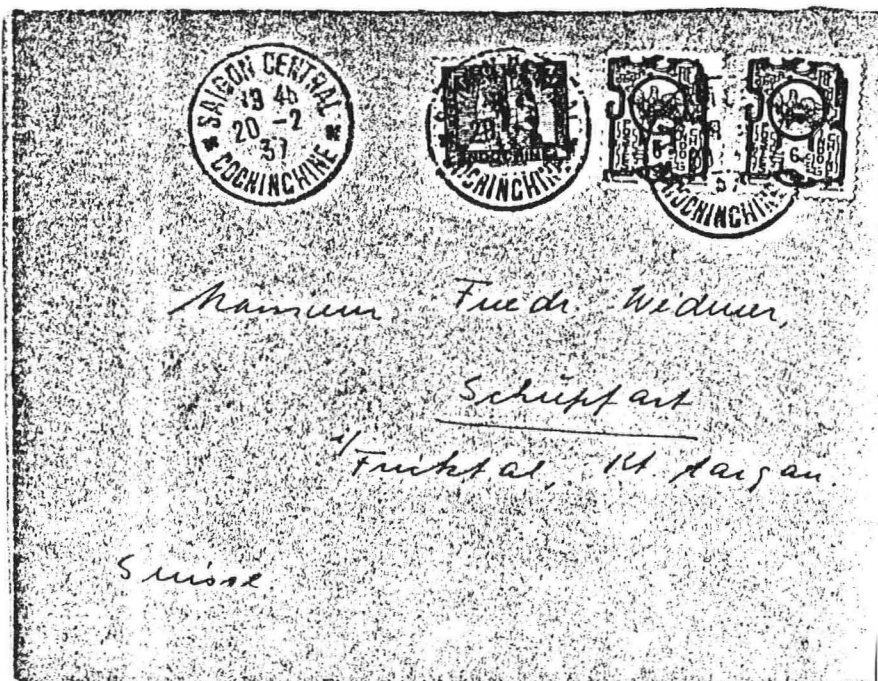 SAIGON CENTRAL
19 45
20 - 2
37
COCHINCHINE
INDOCHINE
COCHINCHINE
COCHINCHINE
Monsieur Friedr. Widmer,
Schupfart
i/Fricktal, Kt Aargau.
Suisse